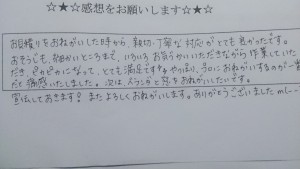 ☆★☆感想をお願いします☆★☆
お見積りをおねがいした時から、親切、丁寧な対応がとても良かったです。
おそうじも、細かいところまで、いろいろお気づかいいただきながら作業していた
だき、ピカピカになって、とても満足です♪やはり、プロにおねがいするのが一番
だと痛感いたしました。次は、ベランダと窓をおねがいしたいです。
宣伝しておきます！またよろしくおねがいします。ありがとうございましたm(_ _